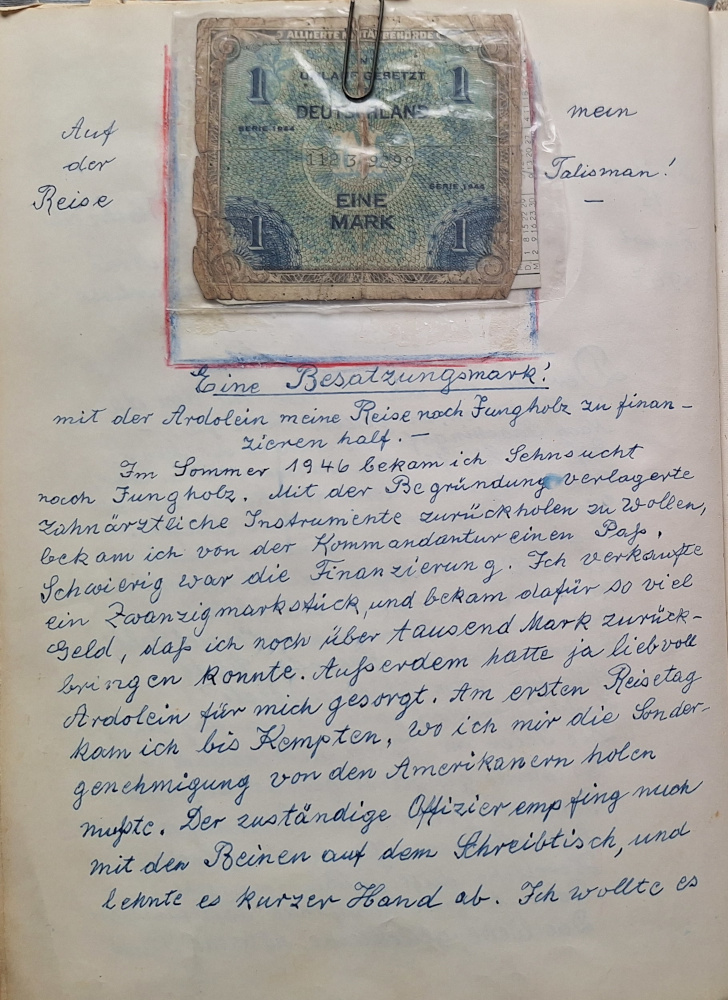 ALLIIERTE MILITÄRBEHÖRDE
1 UMLAUF GESETZT 1
DEUTSCHLAND
SERIE 1944
SERIE 1944
EINE
MARK
1 1
Auf
der
Reise
mein
Talisman!
Eine Besatzungsmark!
mit der Ardolein meine Reise nach Jungholz zu finan-
zieren half. —
Im Sommer 1946 bekam ich Sehnsucht
nach Jungholz. Mit der Begründung verlagerte
zahnärztliche Instrumente zurückholen zu wollen,
bekam ich von der Kommandantur einen Paß.
Schwierig war die Finanzierung. Ich verkaufte
ein Zwanzigmarkstück, und bekam dafür so viel
Geld, daß ich noch über tausend Mark zurück-
bringen konnte. Außerdem hatte ja liebvoll
Ardolein für mich gesorgt. Am ersten Reisetag
kam ich bis Kempten, wo ich mir die Sonder-
genehmigung von den Amerikanern holen
mußte. Der zuständige Offizier empfing mich
mit den Beinen auf dem Schreibtisch, und
lehnte es kurzer Hand ab. Ich wollte es